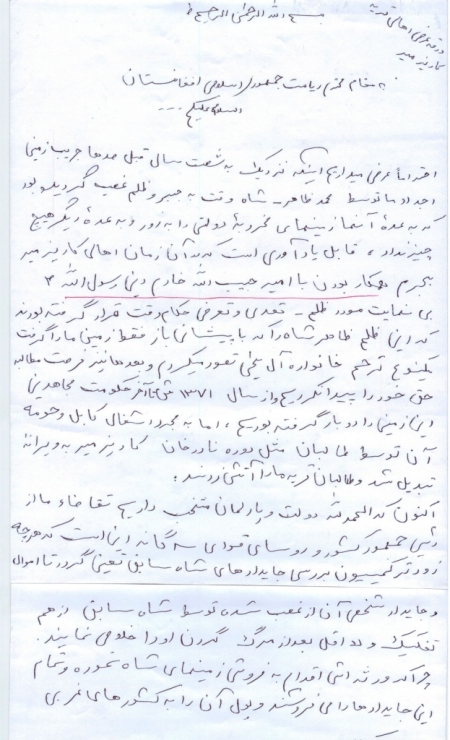 بسم الله الرحمن الرحیم
ورقه عرض اهالی قریه
کاریز میر
به مقام محترم ریاست جمهوری اسلامی افغانستان
السلام علیکم ...
احتراماً عرض میداریم اینکه نزدیک به شصت سال قبل صدها جریب زمینی
اجداد ما توسط محمد ظاهر شاه وقت به جبر و ظلم غصب گردیده بود
که به عدهٔ آنها زمینهای مخروبهٔ دولتی را به دور و به عدهٔ دیگر هیچ
چیز نداد، قابل یادآوری است که در آن زمان اهالی کاریز میر
بجرم همکار بودن با امیر حبیب الله خادم دین رسول الله
بی نهایت مورد ظلم - تعدی و تعرض حکام وقت قرار گرفته بودند
که این ظلم ظاهر شاه را که با پیشانی باز فقط زمین ما را گرفت
یکنوع ترحم خانواده آل یحیی تصور میکردیم و بعدها نیز فرصت مطالبه
حق خود را پیدا نکردیم و از سال ۱۳۷۱ ش تا آخر حکومت مجاهدین
این زمین را دوباره گرفته بودیم، اما به مجرد اشغال کابل و حومه
آن توسط طالبان مثل دوره نادر خان کاریز میر به ویرانهٔ
تبدیل شد و طالبان قریه ما را آتش زدند.
اکنون که الحمدلله دولت و پارلمان منتخب داریم تقاضاء ما از
رئیس جمهور کشور و روسای قوای سه گانه این است که هر چه
زودتر کمیسیون بررسی جایدادهای شاه سابق تعین گردد تا اموال
و جایداد شخصی آن از غصب شده توسط شاه سابق از هم
تفکیک و لااقل بعد از مرگ گردن او را خلاص نمایند.
چرا که ورثه اش اقدام به فروش زمینهای شاه نموده و تمام
این جایدادها را می فروشند و پول آن را به کشورهای غربی